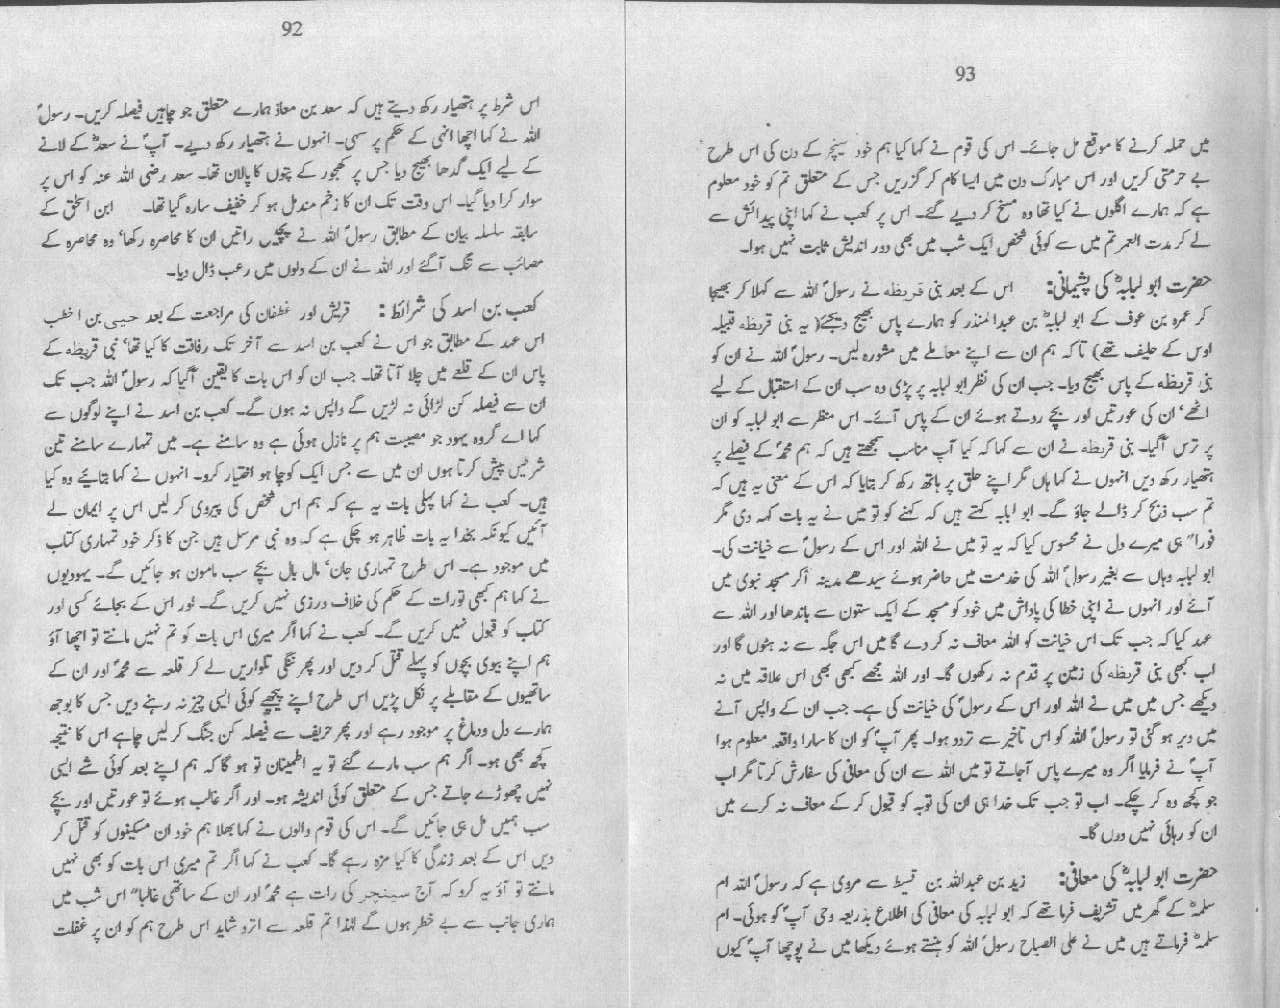 92
اس شرط پر ہتھیار رکھ دیتے ہیں کہ سعد بن معاذ ہمارے متعلق جو چاہیں فیصلہ کریں۔ رسولؐ
اللہ نے کہا اچھا انہی کے حکم پر سہی۔ انہوں نے ہتھیار رکھ دیے۔ آپؐ نے سعدؓ کے لانے
کے لیے ایک گدھا بھیج دیا جس پر کھجور کے پتوں کا پالان تھا۔ سعد رضی اللہ عنہ کو اس پر
سوار کرا دیا گیا۔ اس وقت تک ان کا زخم مندمل ہو کر خفیف سارہ گیا تھا۔ ابن اسحٰق کے
سابقہ سلسلہ بیان کے مطابق رسولؐ اللہ نے پچیس راتیں ان کا محاصرہ رکھا‘ وہ محاصرہ کے
مصائب سے تنگ آگئے اور اللہ نے ان کے دلوں میں رعب ڈال دیا۔
کعب بن اسد کی شرائط: قریش اور غطفان کی مراجعت کے بعد حیی بن اخطب
اس عہد کے مطابق جو اس نے کعب بن اسد سے آخر تک رفاقت کا کیا تھا‘ نبی قریظہ کے
پاس ان کے قلعے میں چلا آتا تھا۔ جب ان کو اس بات کا یقین آگیا کہ رسولؐ اللہ جب تک
ان سے فیصلہ کن لڑائی نہ لڑیں گے واپس نہ ہوں گے۔ کعب بن اسد نے اپنے لوگوں سے
کہا اے گروہ یہود جو مصیبت ہم پر نازل ہوئی ہے وہ سامنے ہے۔ میں تمہارے سامنے تین
شرطیں پیش کرتا ہوں ان میں سے جس ایک کو چاہو اختیار کرو۔ انہوں نے کہا بتائیے وہ کیا
ہیں۔ کعب نے کہا پہلی بات یہ ہے کہ ہم اس شخص کی پیروی کر لیں اس پر ایمان لے
آئیں کیونکہ بخدا یہ بات ظاہر ہو چکی ہے کہ وہ نبی مرسل ہیں جن کا ذکر خود تمہاری کتاب
میں موجود ہے۔ اس طرح تمہاری جان‘ مال بال بچے سب مامون ہو جائیں گے۔ یہودیوں
نے کہا ہم کبھی تورات کے حکم کی خلاف ورزی نہیں کریں گے۔ نور اس کے بجائے کسی اور
کتاب کو قبول نہیں کریں گے۔ کعب نے کہا اگر میری اس بات کو تم نہیں مانتے تو اچھا آؤ
ہم اپنے بیوی بچوں کو پہلے قتل کر دیں اور پھر ننگی تلواریں لے کر قلعہ سے محمدؐ اور ان کے
ساتھیوں کے مقابلے پر نکل پڑیں اس طرح اپنے پیچھے کوئی ایسی چیز نہ رہنے دیں جس کا بوجھ
ہمارے دل ودماغ پر موجود رہے اور پھر حریف سے فیصلہ کن جنگ کر لیں چاہے اس کا نتیجہ
کچھ بھی ہو۔ اگر ہم سب مارے گئے تو یہ اطمینان تو ہو گا کہ ہم اپنے بعد کوئی شے ایسی
نہیں چھوڑے جاتے جس کے متعلق کوئی اندیشہ ہو۔ اور اگر غالب ہوئے تو عورتیں اور بچے
سب ہمیں مل ہی جائیں گے۔ اس کی قوم والوں نے کہا بھلا ہم خود ان مسکینوں کو قتل کر
دیں اس کے بعد زندگی کا کیا مزہ رہے گا۔ کعب نے کہا اگر تم میری اس بات کو بھی نہیں
مانتے تو آؤ یہ کرو کہ آج سینچر کی رات ہے محمدؐ اور ان کے ساتھی غالباً اس شب میں
ہماری جانب سے بے خطر ہوں گے لہٰذا تم قلعہ سے اترو شاید اس طرح ہم کو ان پر غفلت
93
میں حملہ کرنے کا موقع مل جائے۔ اس کی قوم نے کہا کیا ہم خود سنیچر کے دن کی اس طرح
بے حرمتی کریں اور اس مبارک دن میں ایسا کام کر گزریں جس کے متعلق تم کو خود معلوم
ہے کہ ہمارے اگلوں نے کیا تھا وہ مسخ کر دیے گئے۔ اس پر کعب نے کہا اپنی پیدائش سے
لے کر مدت العمر تم میں سے کوئی شخص ایک شب میں بھی دور اندیش ثابت نہیں ہوا۔
حضرت ابو لبابہؓ کی پشیمانی: اس کے بعد بنی قریظہ نے رسولؐ اللہ سے کہلا کر بھیجا
کر عمرہ بن عوف کے ابو لبابہؓ بن عبدالمنذر کو ہمارے پاس بھیج دیجئے( یہ بنی قریظہ قبیلہ
اوس کے حلیف تھے) تا کہ ہم ان سے اپنے معاملے میں مشورہ لیں۔ رسولؐ اللہ نے ان کو
بنی قریظہ کے پاس بھیج دیا۔ جب ان کی نظر ابو لبابہ پر پڑی وہ سب ان کے استقبال کے لیے
اٹھے‘ ان کی عورتیں اور بچے روتے ہوئے ان کے پاس آئے۔ اس منظر سے ابو لبابہ کو ان
پر ترس آگیا۔ بنی قریظہ نے ان سے کہا کہ کیا آپ مناسب سمجھتے ہیں کہ ہم محمدؐ کے فیصلے پر
ہتھیار رکھ دیں انہوں نے کہا ہاں مگر اپنے حلق پر ہاتھ رکھ کر بتایا کہ اس کے معنی یہ ہیں کہ
تم سب ذبح کر ڈالے جاؤ گے۔ ابو لبابہ کہتے ہیں کہ کہنے کو تو میں نے یہ بات کہہ دی مگر
فوراً ہی میرے دل نے محسوس کیا کہ یہ تو میں نے اللہ اور اس کے رسولؐ سے خیانت کی۔
ابو لبابہ وہاں سے بغیر رسولؐ اللہ کی خدمت میں حاضر ہوئے سیدھے مدینہ آکر مسجد نبوی میں
آئے اور انہوں نے اپنی خطا کی پاداش میں خود کو مسجد کے ایک ستون سے باندھا اور اللہ سے
عہد کیا کہ جب تک اس خیانت کو اللہ معاف نہ کر دے گا میں اس جگہ سے نہ ہٹوں گا اور
اب کبھی بنی قریظہ کی زمین پر قدم نہ رکھوں گا۔ اور اللہ مجھے کبھی بھی اس علاقہ میں نہ
دیکھے جس میں میں نے اللہ اور اس کے رسولؐ کی خیانت کی ہے۔ جب ان کے واپس آنے
میں دیر ہو گئی تو رسولؐ اللہ کو اس تاخیر سے تردد ہوا۔ پھر آپؐ کو ان کا سارا واقعہ معلوم ہوا
آپؐ نے فرمایا اگر وہ میرے پاس آجاتے تو میں اللہ سے ان کی معافی کی سفارش کرتا مگر اب
جو کچھ وہ کر چکے۔ اب تو جب تک خدا ہی ان کی توبہ کو قبول کر کے معاف نہ کرے میں
ان کو رہائی نہیں دوں گا۔
حضرت ابو لبابہؓ کی معافی: زید بن عبداللہ بن قسیط سے مروی ہے کہ رسولؐ اللہ ام
سلمہؓ کے گھر میں تشریف فرما تھے کہ ابو لبابہ کی معافی کی اطلاع بذریعہ وحی آپؐ کو ہوئی۔ ام
سلمہؓ فرماتے ہیں میں نے علی الصباح رسولؐ اللہ کو ہنستے ہوئے دیکھا میں نے پوچھا آپؐ کیوں